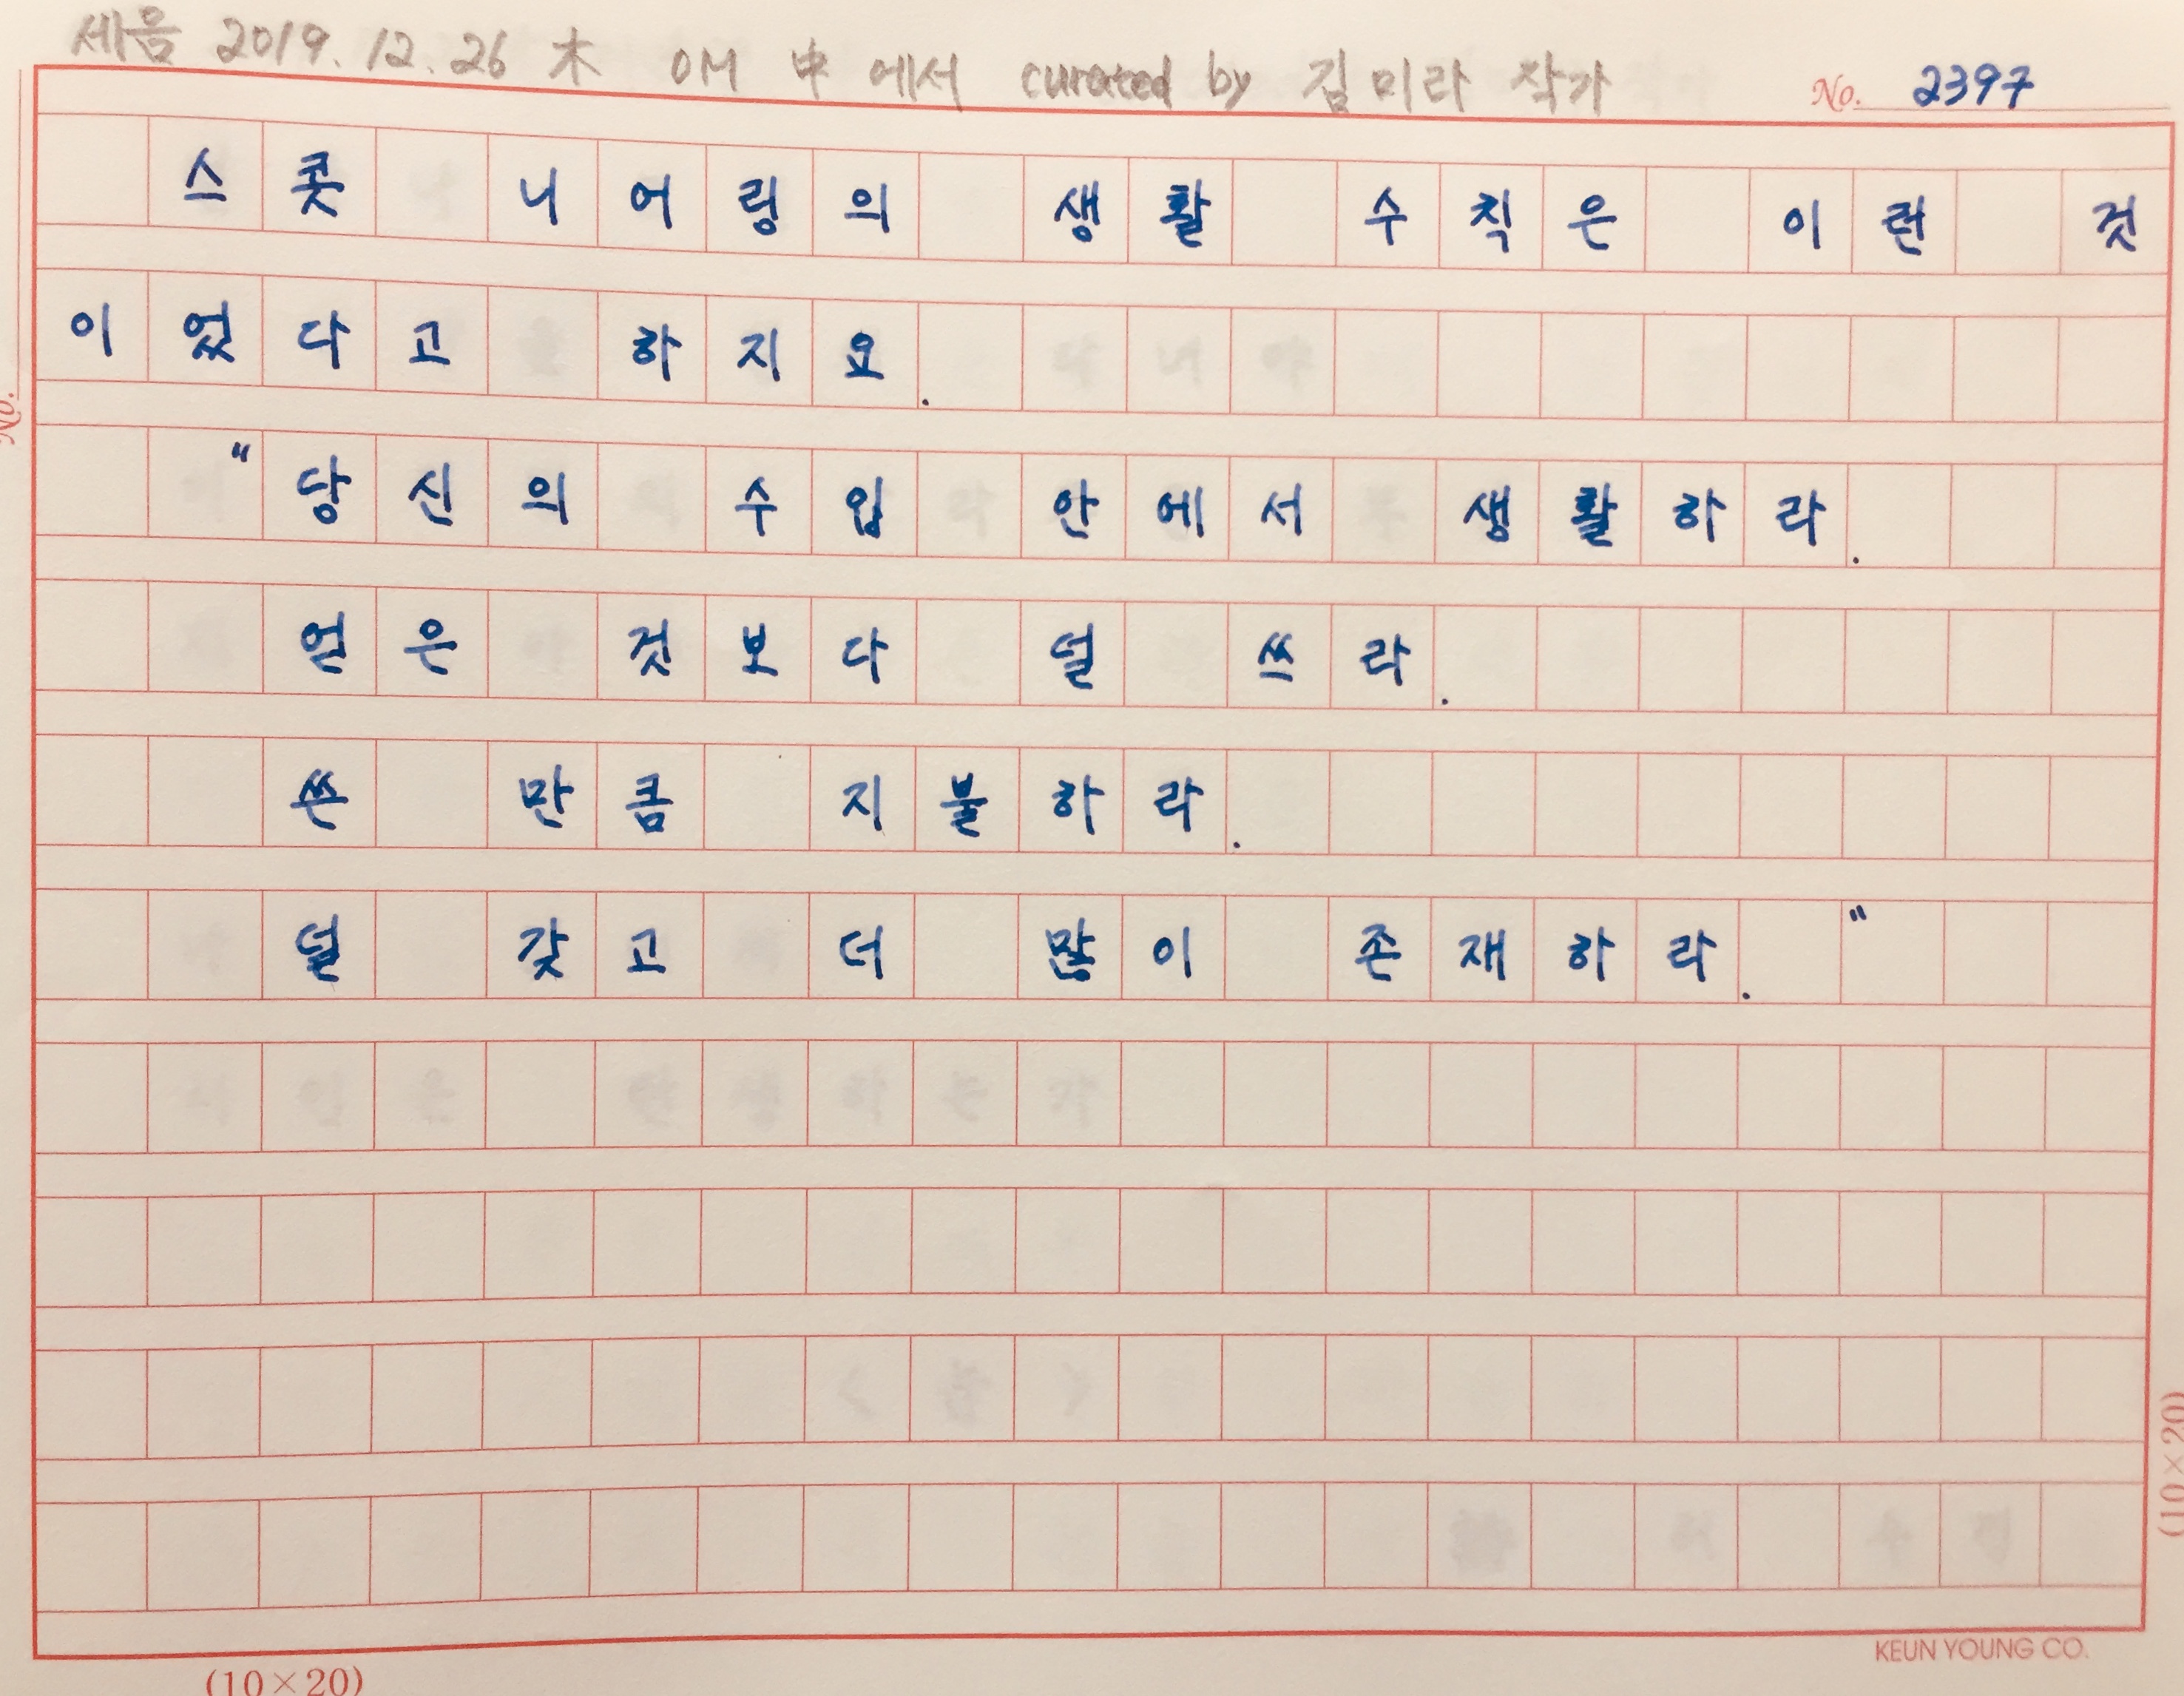 세음 2019. 12. 26 木 OM 中 에서 curated by 김미라 작가 No. 2397
스콧 니어링의 생활 수칙은 이런 것
이었다고 하지요.
"당신의 수입 안에서 생활하라.
얻은 것보다 덜 쓰라.
쓴 만큼 지불하라.
덜 갖고 더 많이 존재하라."
No.
(10×20)
KEUN YOUNG CO.
(10×20)